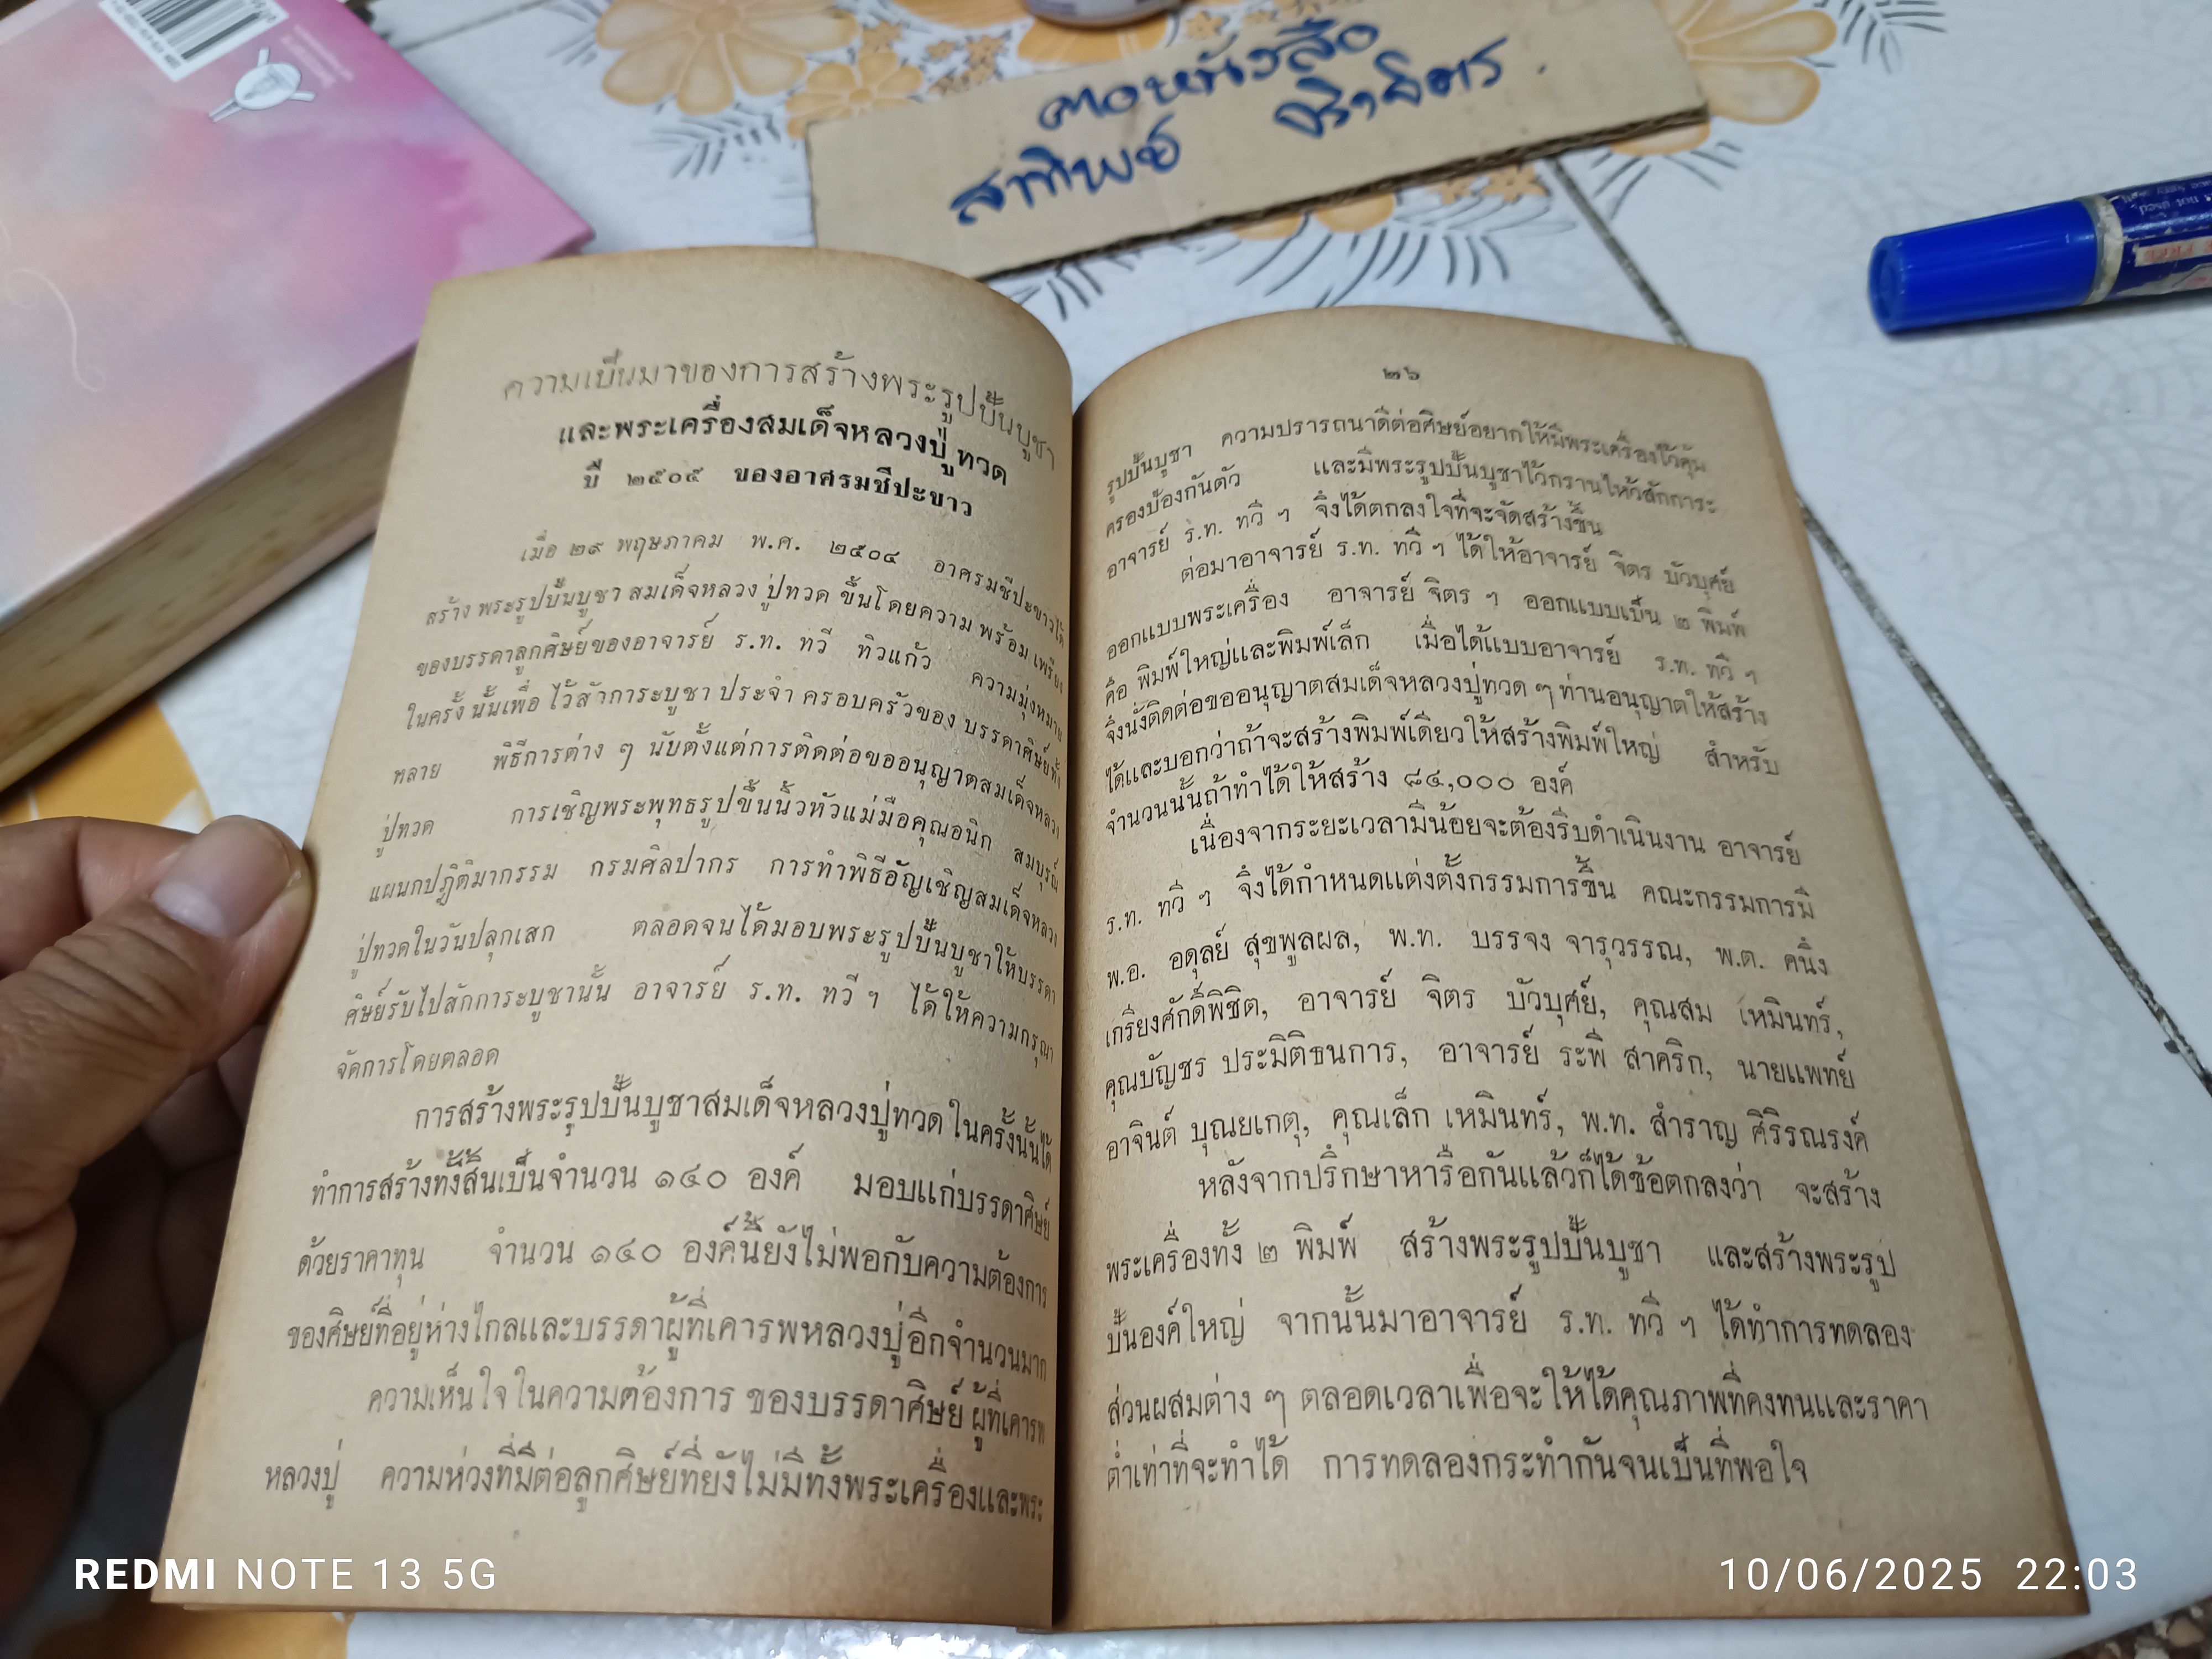 คอหนังสือ
สาทิพย์ จิราจิตร
ความเป็นมาของการสร้างพระรูปปั้นบูชา
และพระเครื่องสมเด็จหลวงปู่ทวด
ปี ๒๕๐๕ ของอาศรมชีปะขาว
เมื่อ ๒๙ พฤษภาคม พ.ศ. ๒๕๐๔ อาศรมชีปะขาวได้
สร้าง พระรูปปั้นบูชา สมเด็จหลวง ปู่ทวด ขึ้นโดยความ พร้อม เพรียง
ของบรรดาลูกศิษย์ของอาจารย์ ร.ท. ทวี ทิวแก้ว ความมุ่งหมาย
ในครั้ง นั้นเพื่อ ไว้สักการะบูชา ประจำ ครอบครัวของ บรรดาศิษย์ทั้ง
หลาย พิธีการต่าง ๆ นับตั้งแต่การติดต่อขออนุญาตสมเด็จหลวง
ปู่ทวด การเชิญพระพุทธรูปขึ้นนิ้วหัวแม่มือคุณอนิก สมบุรณ์
แผนกปฏิติมากรรม กรมศิลปากร การทำพิธีอัญเชิญสมเด็จหลวง
ปู่ทวดในวันปลุกเสก ตลอดจนได้มอบพระรูปปั้นบูชาให้บรรดา
ศิษย์รับไปสักการะบูชานั้น อาจารย์ ร.ท. ทวี ฯ ได้ให้ความกรุณา
จัดการโดยตลอด
การสร้างพระรุปปั้นบูชาสมเด็จหลวงปู่ทวด ในครั้งนั้นได้
ทำการสร้างทั้งสิ้นเป็นจำนวน ๑๔๐ องค์ มอบแก่บรรดาศิษย์
ด้วยราคาทุน จำนวน ๑๔๐ องค์นี้ยังไม่พอกับความต้องการ
ของศิษย์ที่อยู่ห่างไกลและบรรดาผู้ที่เคารพหลวงปู่อีกจำนวนมาก
ความเห็นใจในความต้องการ ของบรรดาศิษย์ ผู้ที่เคารพ
หลวงปู่ ความห่วงที่มีต่อลูกศิษย์ที่ยังไม่มีทั้งพระเครื่องและพระ
๒๖
รูปปั้นบูชา ความปรารถนาดีต่อศิษย์อยากให้มีพระเครื่องไว้คุ้ม
ครองป้องกันตัว และมีพระรูปปั้นบูชาไว้กราบไหว้สักการะ
อาจารย์ ร.ท. ทวี ฯ จึงได้ตกลงใจที่จะจัดสร้างขึ้น
ต่อมาอาจารย์ ร.ท. ทวี ฯ ได้ให้อาจารย์ จิตร บัวบุศย์
ออกแบบพระเครื่อง อาจารย์ จิตร ฯ ออกแบบเป็น ๒ พิมพ์
คือ พิมพ์ใหญ่และพิมพ์เล็ก เมื่อได้แบบอาจารย์ ร.ท. ทวี ฯ
จึงนั่งติดต่อขออนุญาตสมเด็จหลวงปู่ทวด ๆ ท่านอนุญาตให้สร้าง
ได้และบอกว่าถ้าจะสร้างพิมพ์เดียวให้สร้างพิมพ์ใหญ่ สำหรับ
จำนวนนั้นถ้าทำได้ให้สร้าง ๘๔,๐๐๐ องค์
เนื่องจากระยะเวลามีน้อยจะต้องรีบดำเนินงาน อาจารย์
ร.ท. ทวี ฯ จึงได้กำหนดแต่งตั้งกรรมการขึ้น คณะกรรมการมี
พ.อ. อดุลย์ สุขพูลผล, พ.ท. บรรจง จารุวรรณ, พ.ต. คนึง
เกรียงศักดิ์พิชิต, อาจารย์ จิตร บัวบุศย์, คุณสม เหมินทร์,
คุณบัญชร ประมิติธนการ, อาจารย์ ระพี สาคริก, นายแพทย์
อาจินต์ บุณยเกตุ, คุณเล็ก เหมินทร์, พ.ท. สำราญ ศิริรณรงค์
หลังจากปรึกษาหารือกันแล้วก็ได้ข้อตกลงว่า จะสร้าง
พระเครื่องทั้ง ๒ พิมพ์ สร้างพระรูปปั้นบูชา และสร้างพระรูป
ปั้นองค์ใหญ่ จากนั้นมาอาจารย์ ร.ท. ทวี ฯ ได้ทำการทดลอง
ส่วนผสมต่าง ๆ ตลอดเวลาเพื่อจะให้ได้คุณภาพที่คงทนและราคา
ต่ำเท่าที่จะทำได้ การทดลองกระทำกันจนเป็นที่พอใจ
REDMI NOTE 13 5G
10/06/2025 22:03